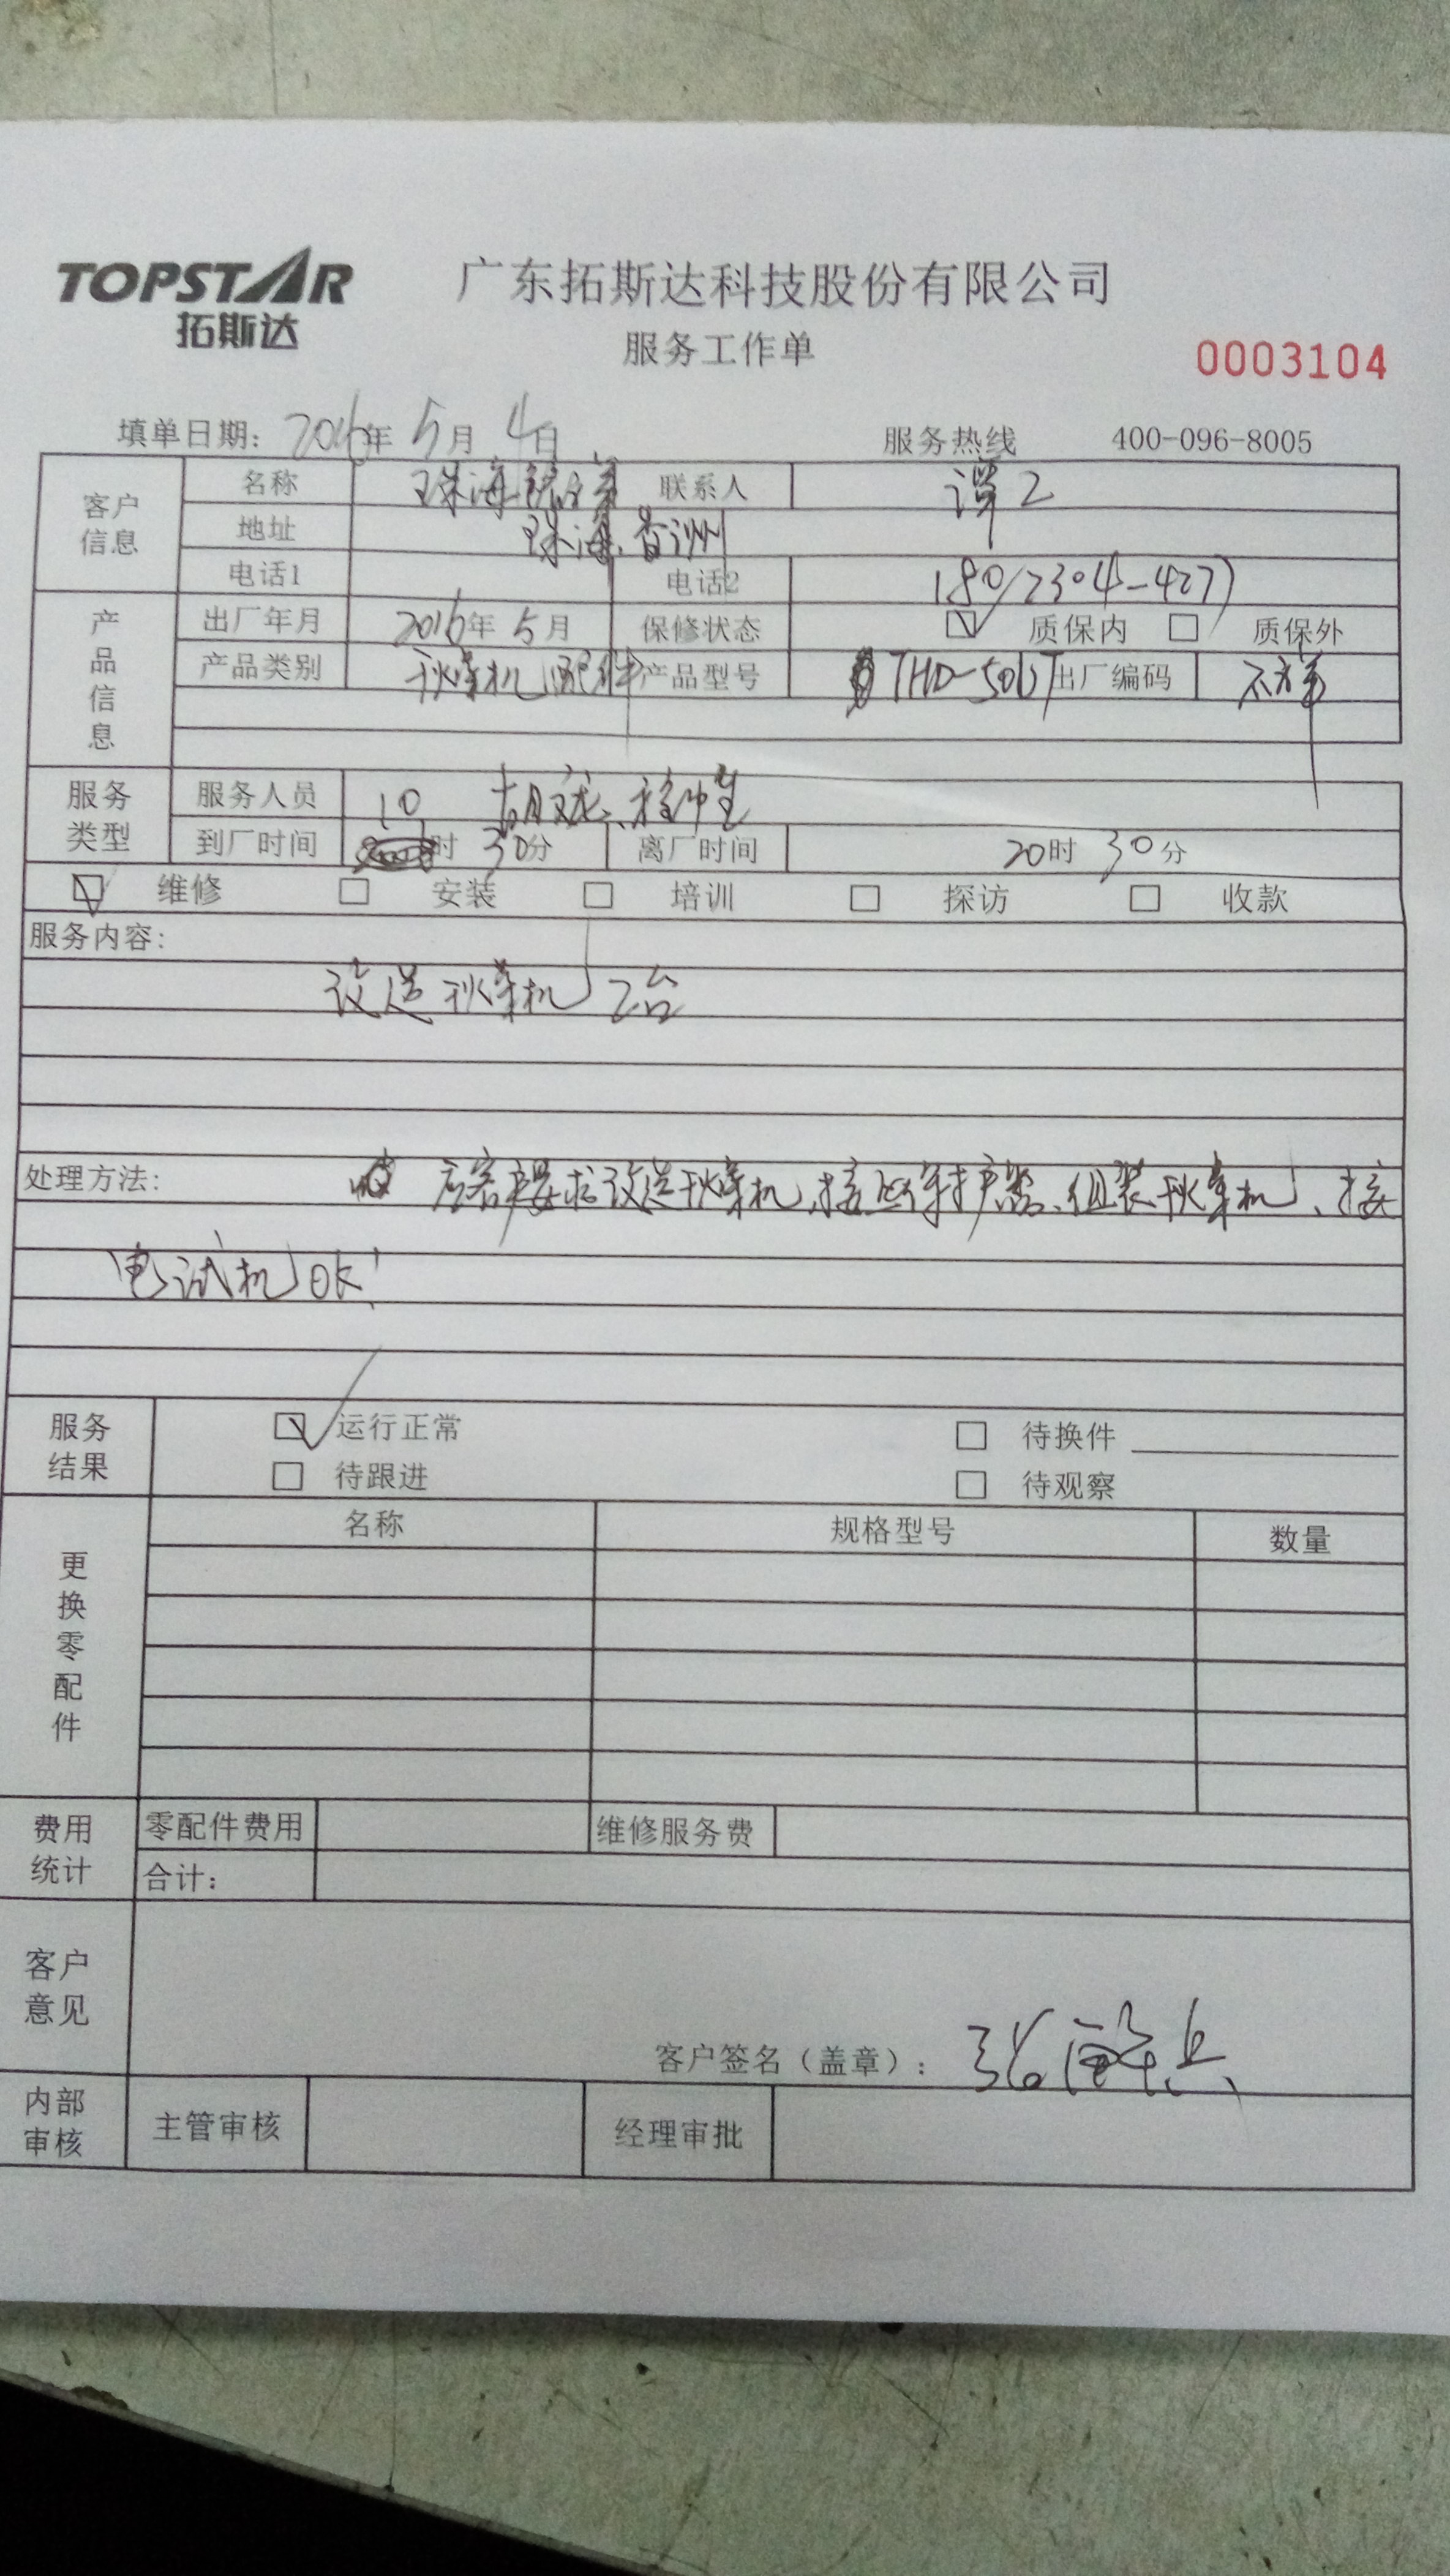 TOPSTAR
拓斯达
广东拓斯达科技股份有限公司
服务工作单
0003104
填单日期: 2016年 5月 4日
服务热线 400-096-8005
客户信息
名称 珠海 联系人 谭工
地址 珠海香洲
电话1 电话2
产品信息
出厂年月 2016年 5月 保修状态 质保内 质保外
产品类别 产品型号 出厂编码 不详
服务类型
服务人员 胡
到厂时间 10时 30分 离厂时间 20时 30分
维修 安装 培训 探访 收款
服务内容:
改造 机 2台
处理方法: 应客户要求改造 机 组装 机、接
电试机OK!
服务结果
运行正常 待换件
待跟进 待观察
更换零配件
名称 规格型号 数量
费用统计
零配件费用 维修服务费
合计:
客户意见
客户签名（盖章）: 张
内部审核
主管审核 经理审批